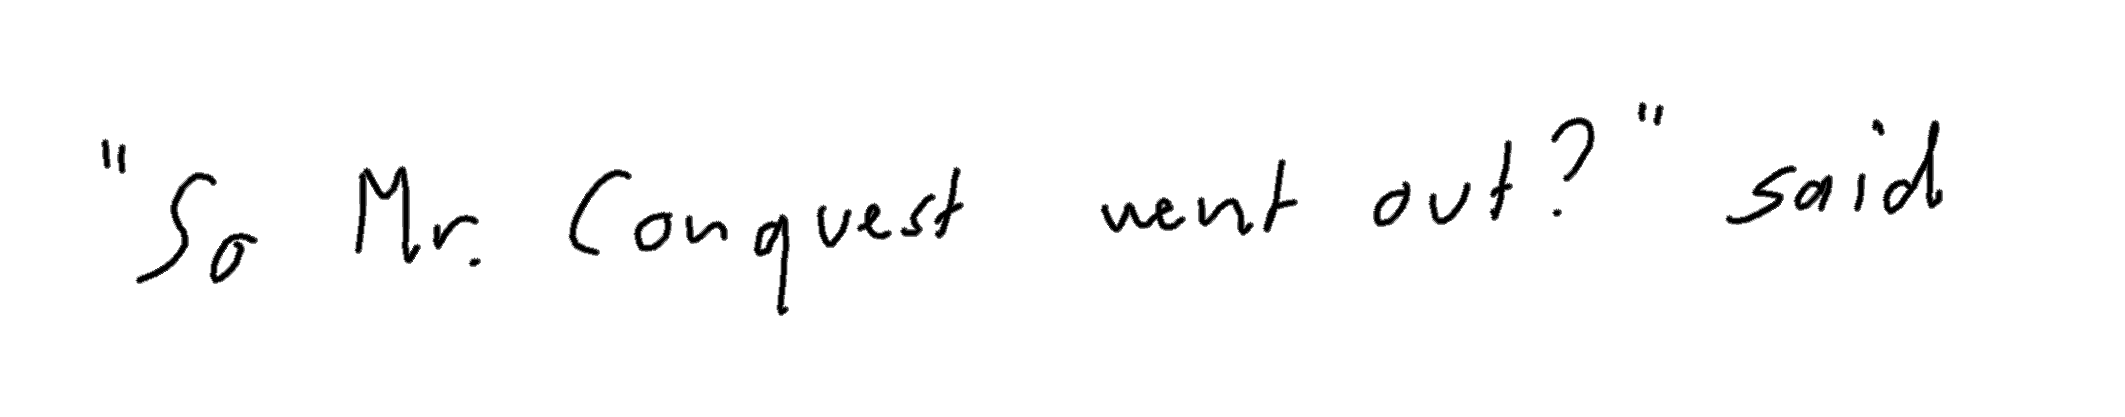 "So Mr. Conquest went out?" said